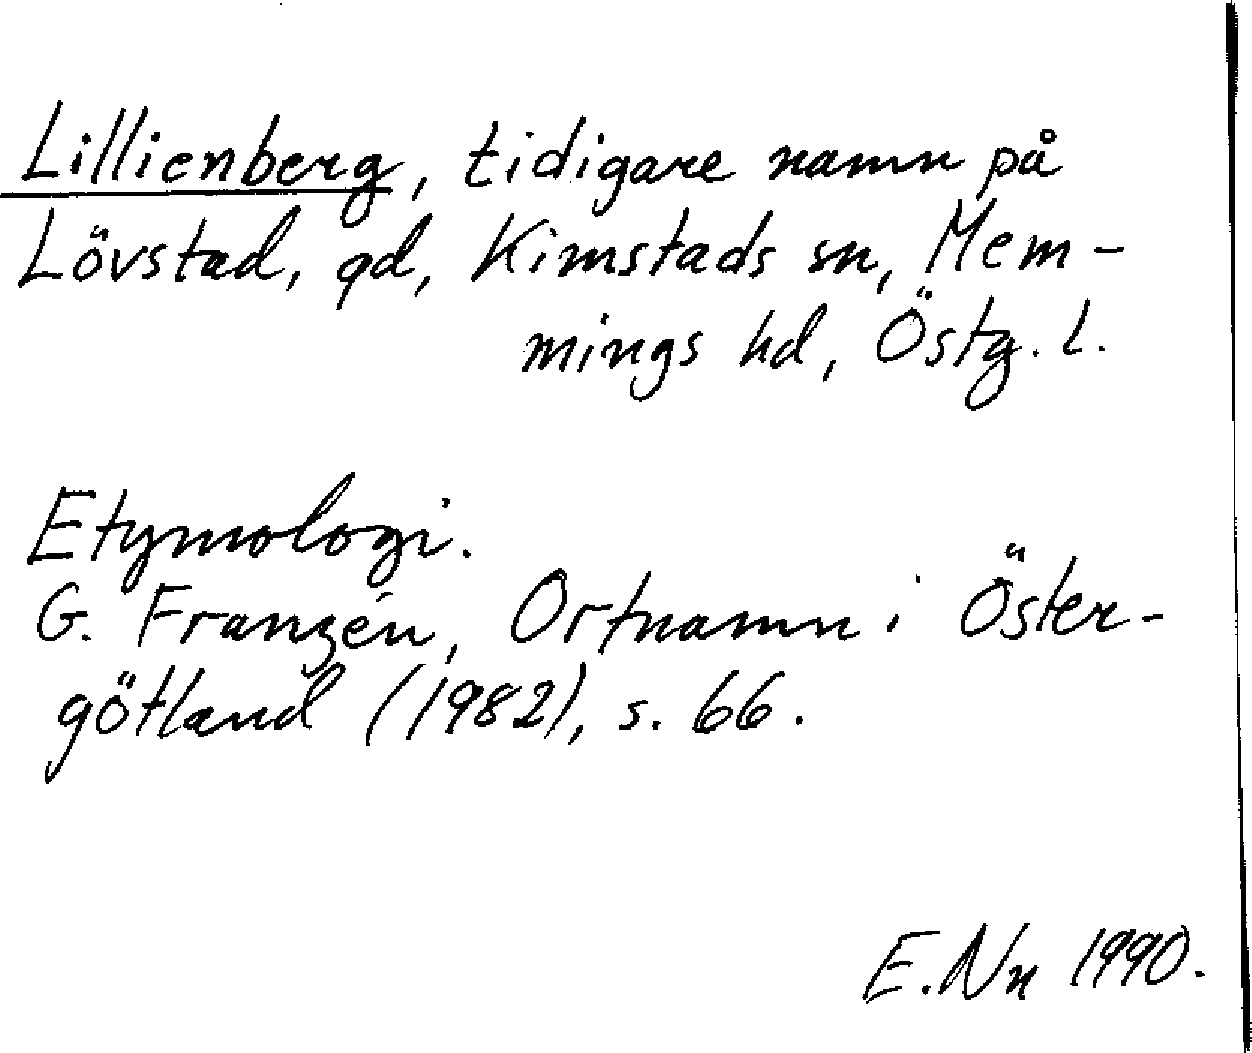 Lillienberg, tidigare namn på
Lövstad, gd, Kimstads sn, Mem-
mings hd, Östg. l.
Etymologi.
G. Franzén, Ortnamn i Öster-
götland (1982), s. 66.
E. Nn 1990.